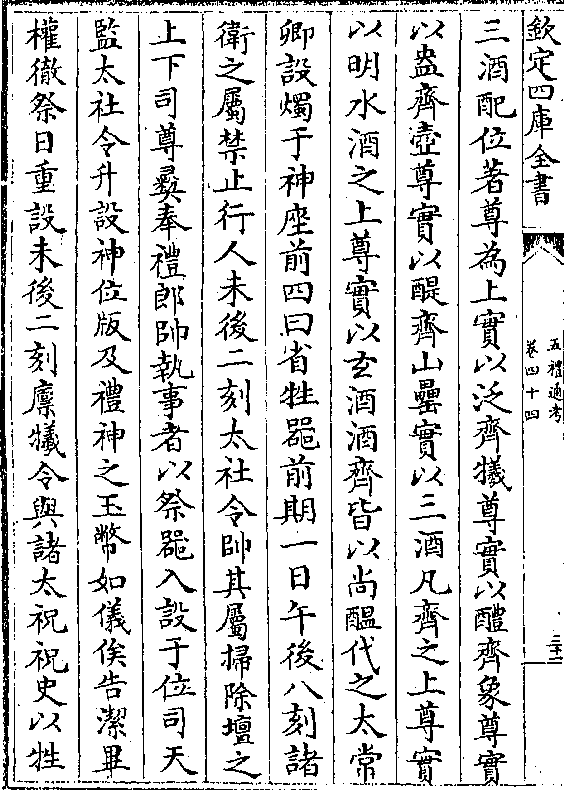 欽定四庫全書
五禮通考
卷四十四
三十二
三酒配位著尊為上實以泛齊犧尊實以醴齊象尊實
以盎齊壺尊實以醍齊山罍實以三酒凡齊之上尊實
以明水酒之上尊實以玄酒酒齊皆以尚醖代之太常
卿設燭于神座前四曰省牲器前期一日午後八刻諸
衛之屬禁止行人未後二刻太社令帥其屬掃除壇之
上下司尊彞奉禮郎帥執事者以祭器入設于位司天
監太社令升設神位版及禮神之玉幣如儀俟告潔畢
權徹祭日重設未後二刻廪犧令與諸太祝祝史以牲